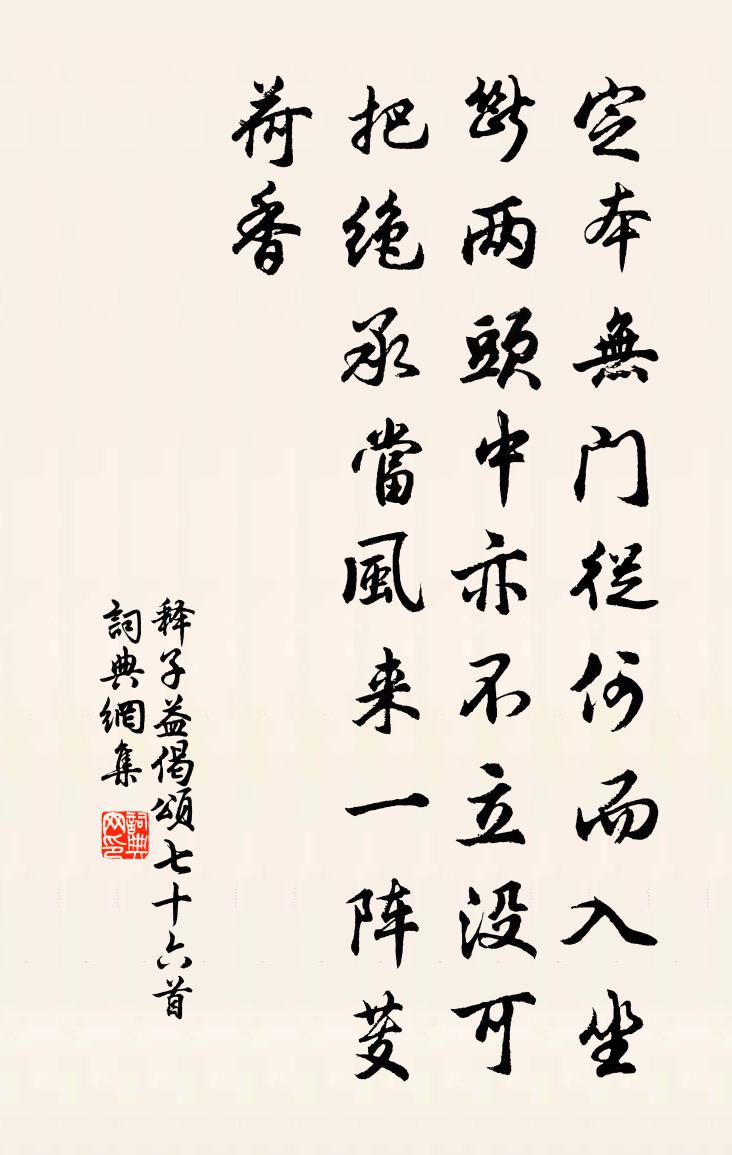 定本無门從何而入坐
斷两頭中亦不立没可
把绝承當風来一阵芰
荷香
释子益偈頌七十六首
詞典網集
詞典网印